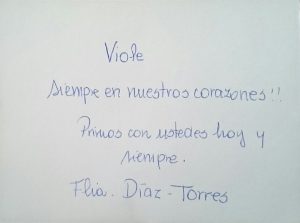 Viole
siempre en nuestros corazones!!
Primos con ustedes hoy y
siempre.
Flia. Díaz-Torres